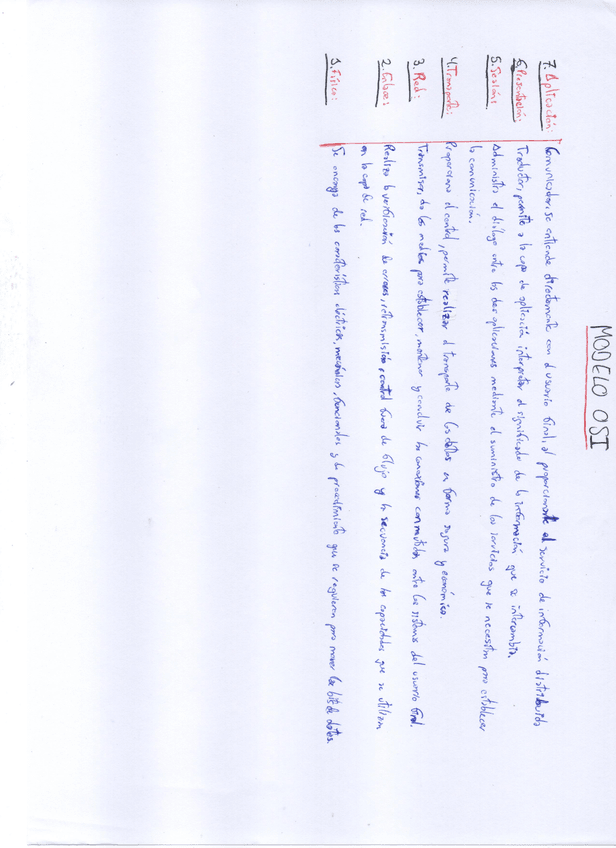 MODELO OSI
7. Aplicación: Comunicador, se entiende directamente con el usuario final, al proporcionarle el servicio de información distribuida
6. Presentación: Traductor, permite a la capa de aplicación interpretar el significado de la información que se intercambia.
5. Sesión: Administra el diálogo entre las dos aplicaciones mediante el suministro de los servicios que se necesitan para establecer
la comunicación.
4. Transporte: Proporciona el control, permite realizar el transporte de los datos en forma segura y económica.
3. Red: Transmisor, da los medios para establecer, mantener y concluir las conexiones conmutadas entre los sistemas del usuario final.
2. Enlace: Realiza la verificación de errores, retransmisión, control fuera de flujo y la secuencia de las capacidades que se utilizan
en la capa de red.
1. Físico: Se encarga de las características eléctricas, mecánicas, funcionales y de procedimiento que se requieren para mover los bits de datos.